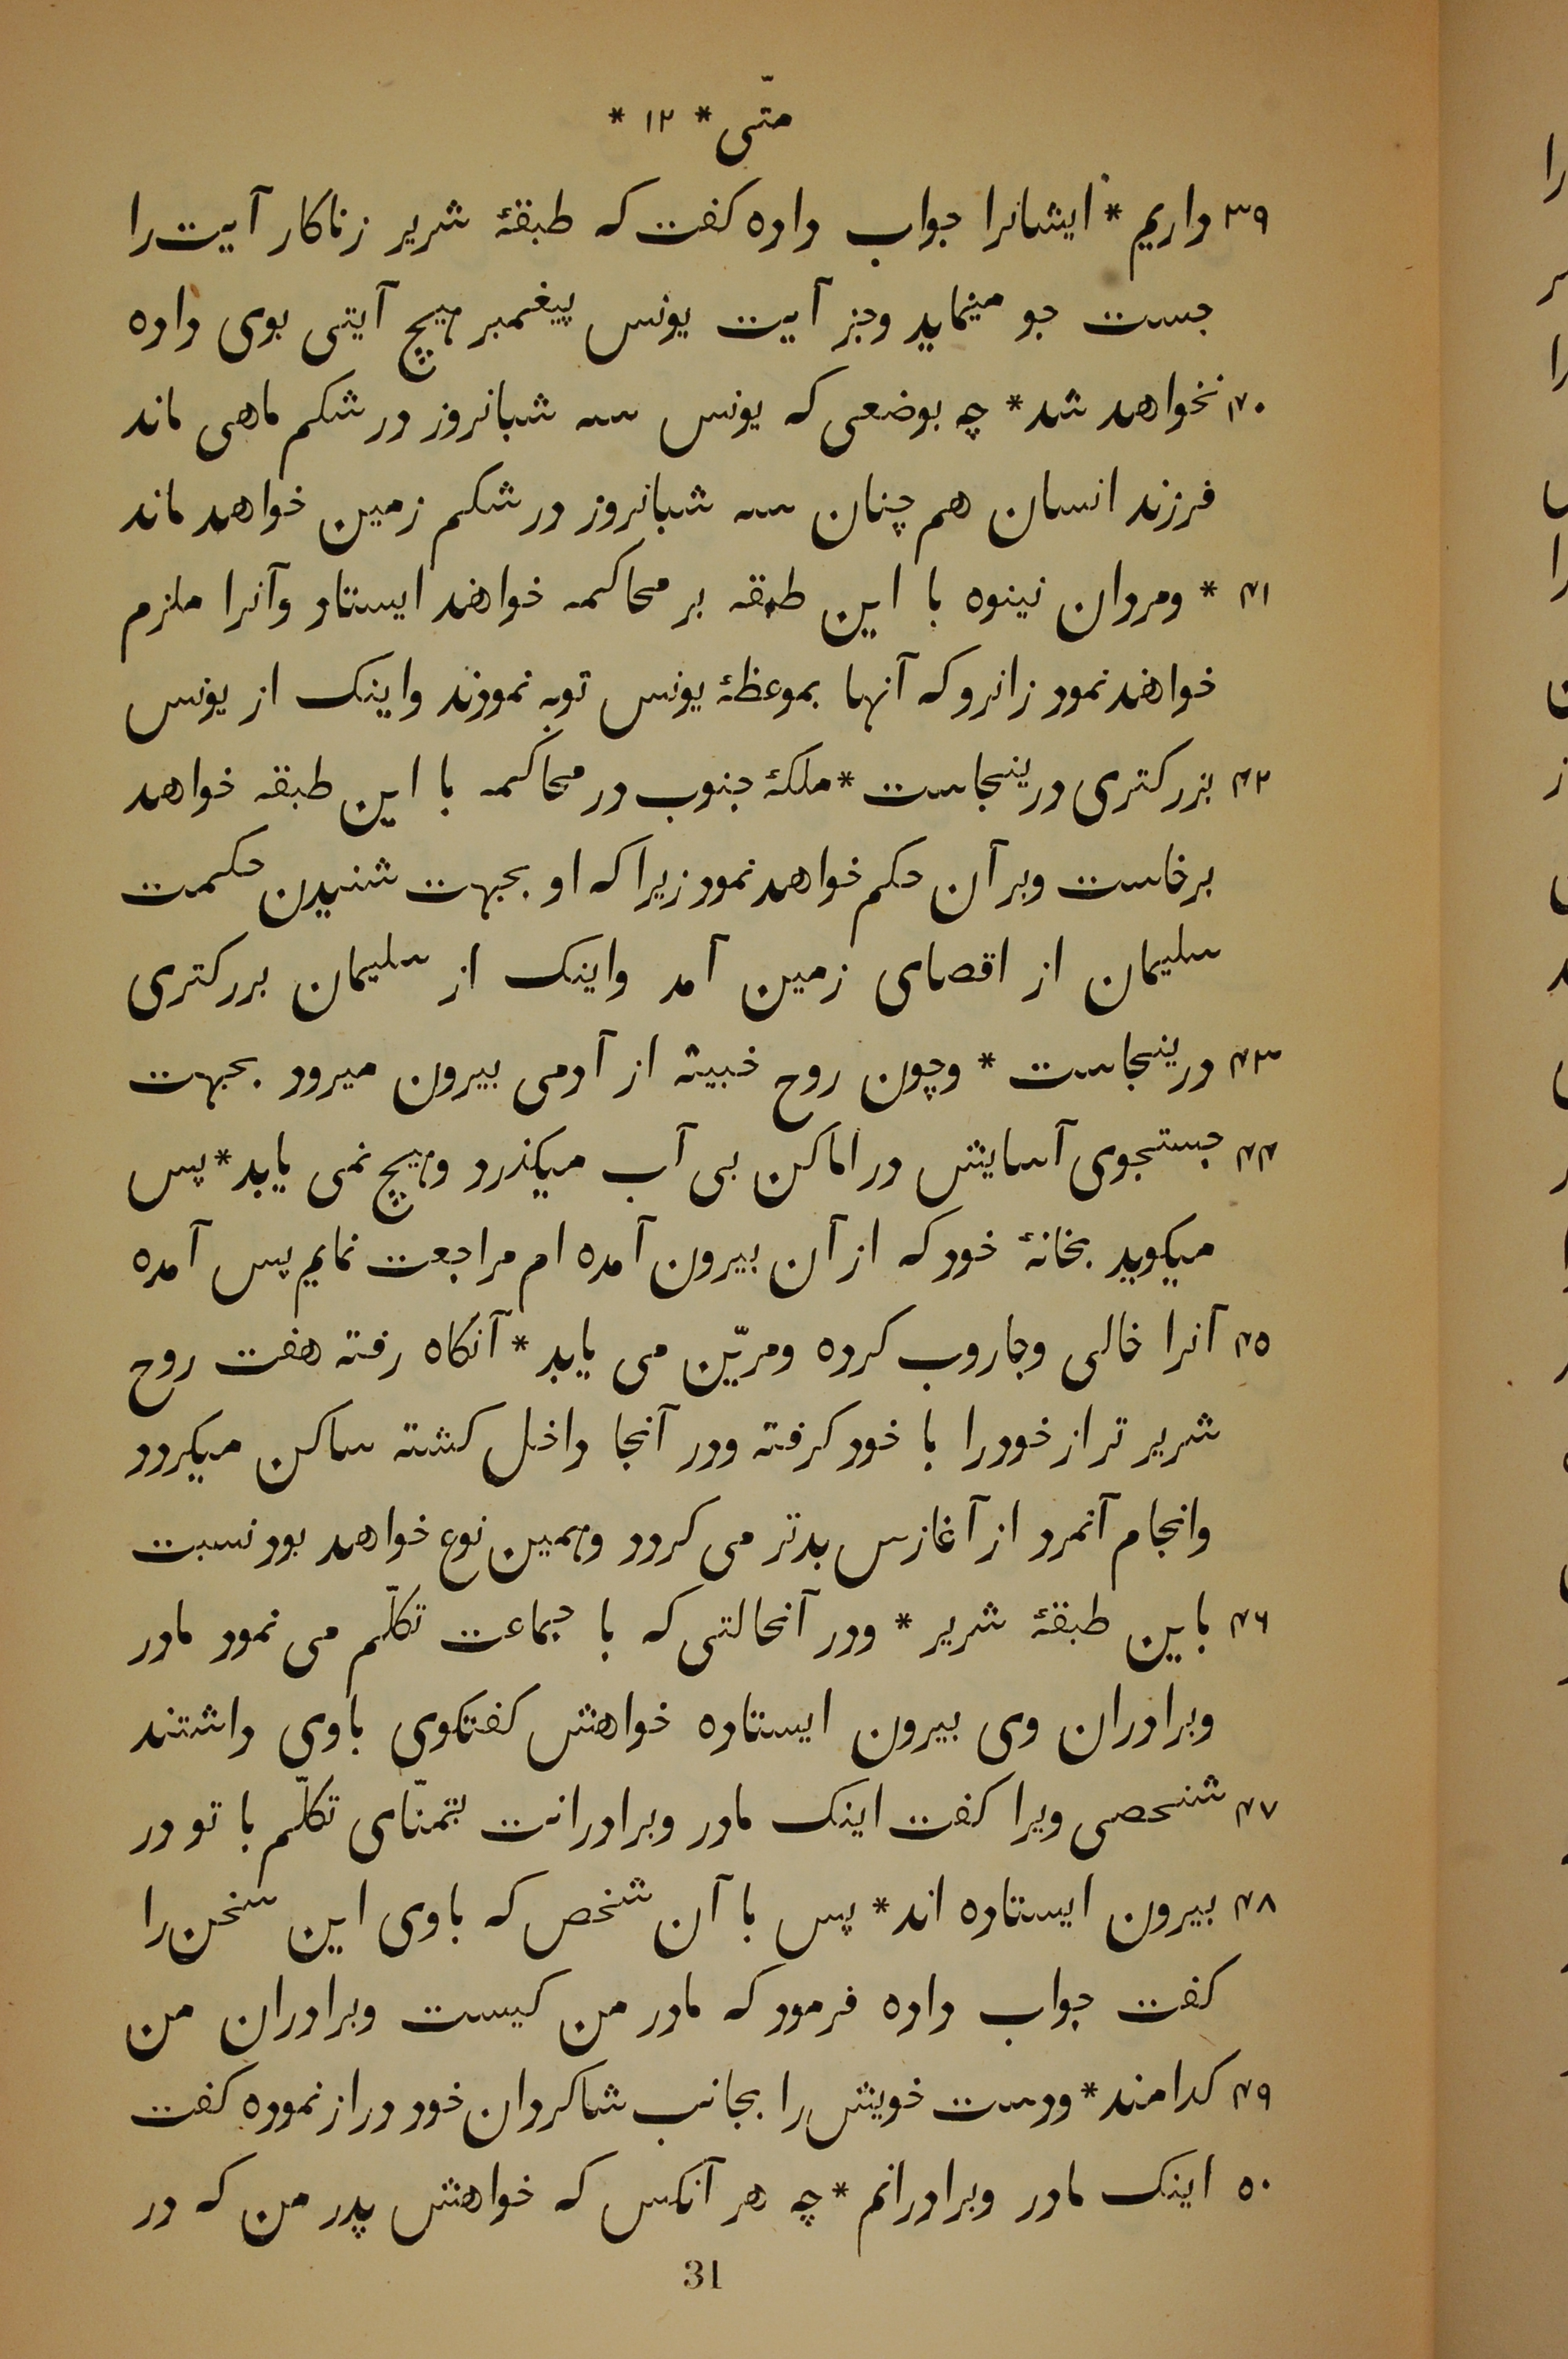 متّی * ۱۲ *
۳۹ داریم * ایشانرا جواب داده کفت که طبقهٔ شریر زناکار آیت را
جست جو مینماید وجز آیت یونس پیغمبر هیچ آیتی بوی داده
۴۰ نخواهد شد * چه بوضعی که یونس سه شبانروز در شکم ماهی ماند
فرزند انسان هم چنان سه شبانروز در شکم زمین خواهد ماند
۴۱ * ومردان نینوه با این طبقه بر محاکمه خواهند ایستاد وآنرا ملزم
خواهند نمود زانرو که آنها بموعظهٔ یونس توبه نمودند واینک از یونس
۴۲ بزرکتری درینجاست * ملکهٔ جنوب در محاکمه با این طبقه خواهد
برخاست وبر آن حکم خواهد نمود زیرا که او بجهت شنیدن حکمت
سلیمان از اقصای زمین آمد واینک از سلیمان بررکتری
۴۳ درینجاست * وچون روح خبیثه از آدمی بیرون میرود بجهت
۴۴ جستجوی آسایش در اماکن بی آب میکذرد وهیچ نمی یابد * پس
میکوید بخانهٔ خود که از آن بیرون آمده ام مراجعت نمایم پس آمده
۴۵ آنرا خالی وجاروب کرده ومریّن می یابد * آنکاه رفته هفت روح
شریر تر از خود را با خود کرفته ودر آنجا داخل کشته ساکن میکردد
وانجام آنمرد از آغازس بدتر می کردد وهمین نوع خواهد بود نسبت
۴۶ باین طبقهٔ شریر * ودر آنحالتی که با جماعت تکلّم می نمود مادر
وبرادران وی بیرون ایستاده خواهش کفتکوی باوی داشتند
۴۷ شخصی ویرا کفت اینک مادر وبرادرانت بتمنّای تکلّم با تو در
۴۸ بیرون ایستاده اند * پس با آن شخص که باوی این سخن را
کفت جواب داده فرمود که مادر من کیست وبرادران من
۴۹ کدامند * ودست خویش را بجانب شاکردان خود دراز نموده کفت
۵۰ اینک مادر وبرادرانم * چه هر آنکس که خواهش پدر من که در
31